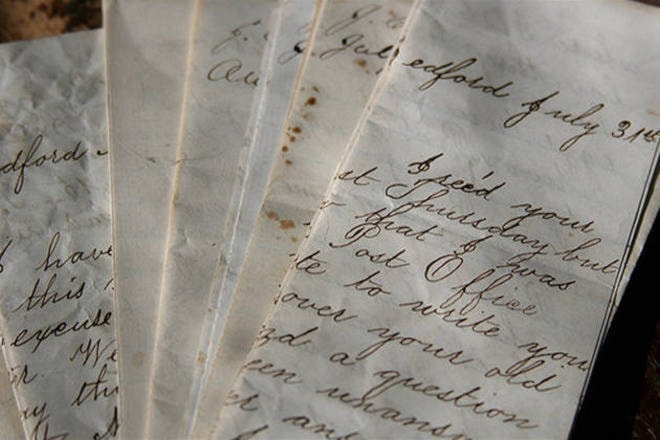 dford
have
this
excuse
r. We
ay this
J.
Au
J. Jul
edford July 31st
I rec'd your
st Thursday but
r that I was
Post Office
te to write you
over your old
nd a question
een unans
er an